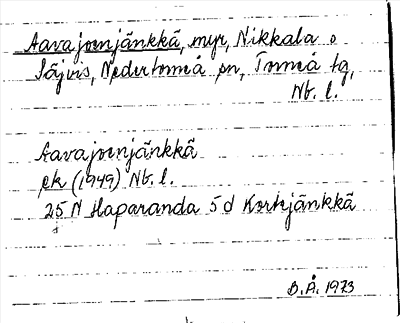 Aavajoenjänkkä, myr, Nikkala o
Säjvis, Nedertorneå sn, Torneå tg,
Nb. l.
Aavajoenjänkkä
ek (1949) Nb. l.
25 N Haparanda 5d Korkjänkkä
B.Å. 1973